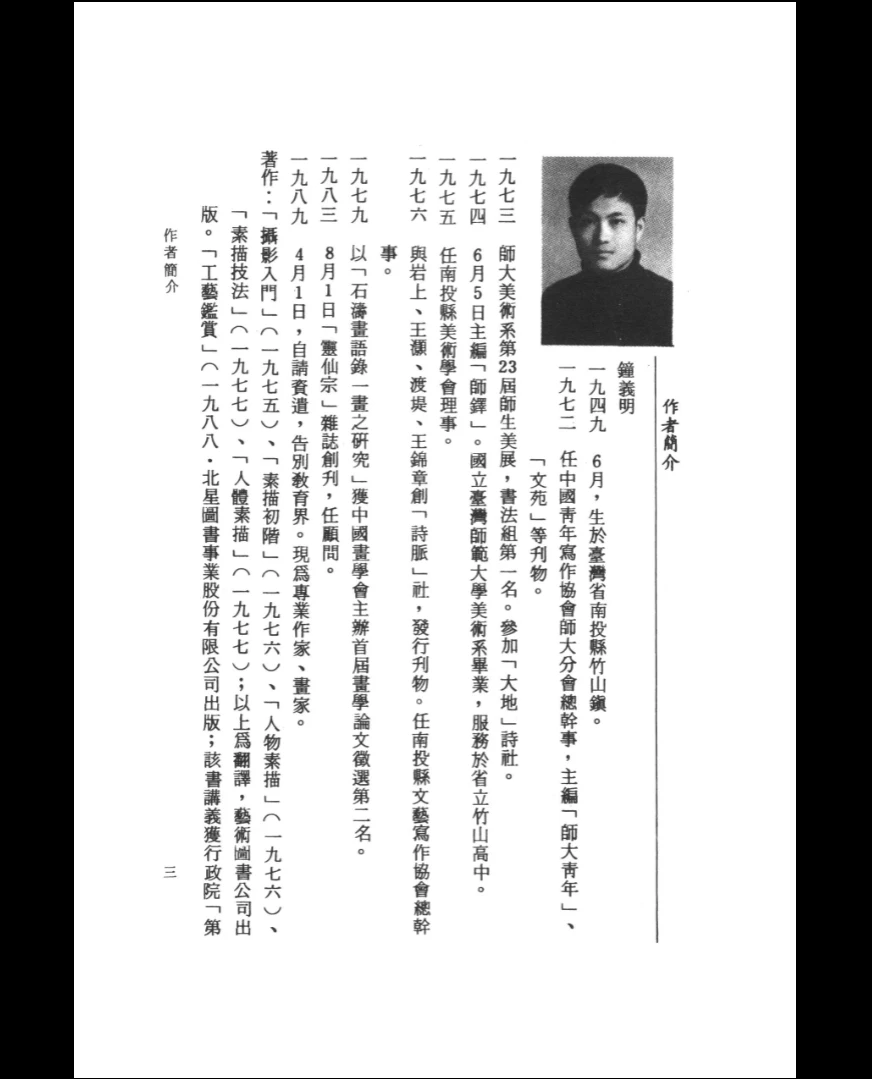 作者簡介
鐘義明
一九四九　6月，生於臺灣省南投縣竹山鎮。
一九七二　任中國青年寫作協會師大分會總幹事，主編「師大青年」、
「文苑」等刊物。
一九七三　師大美術系第23屆師生美展，書法組第一名。參加「大地」詩社。
一九七四　6月5日主編「師鐸」。國立臺灣師範大學美術系畢業，服務於省立竹山高中。
一九七五　任南投縣美術學會理事。
一九七六　與岩上、王灝、渡堤、王錦章創「詩脈」社，發行刊物。任南投縣文藝寫作協會總幹
事。
一九七九　以「石濤畫語錄一畫之研究」獲中國畫學會主辦首屆畫學論文徵選第二名。
一九八三　8月1日「靈仙宗」雜誌創刊，任顧問。
一九八九　4月1日，自請資遣，告別教育界。現爲專業作家、畫家。
著作：「攝影入門」（一九七五）、「素描初階」（一九七六）、「人物素描」（一九七六）、
「素描技法」（一九七七）、「人體素描」（一九七七）；以上爲翻譯，藝術圖書公司出
版。「工藝鑑賞」（一九八八．北星圖書事業股份有限公司出版；該書講義獲行政院「第
作者簡介
三